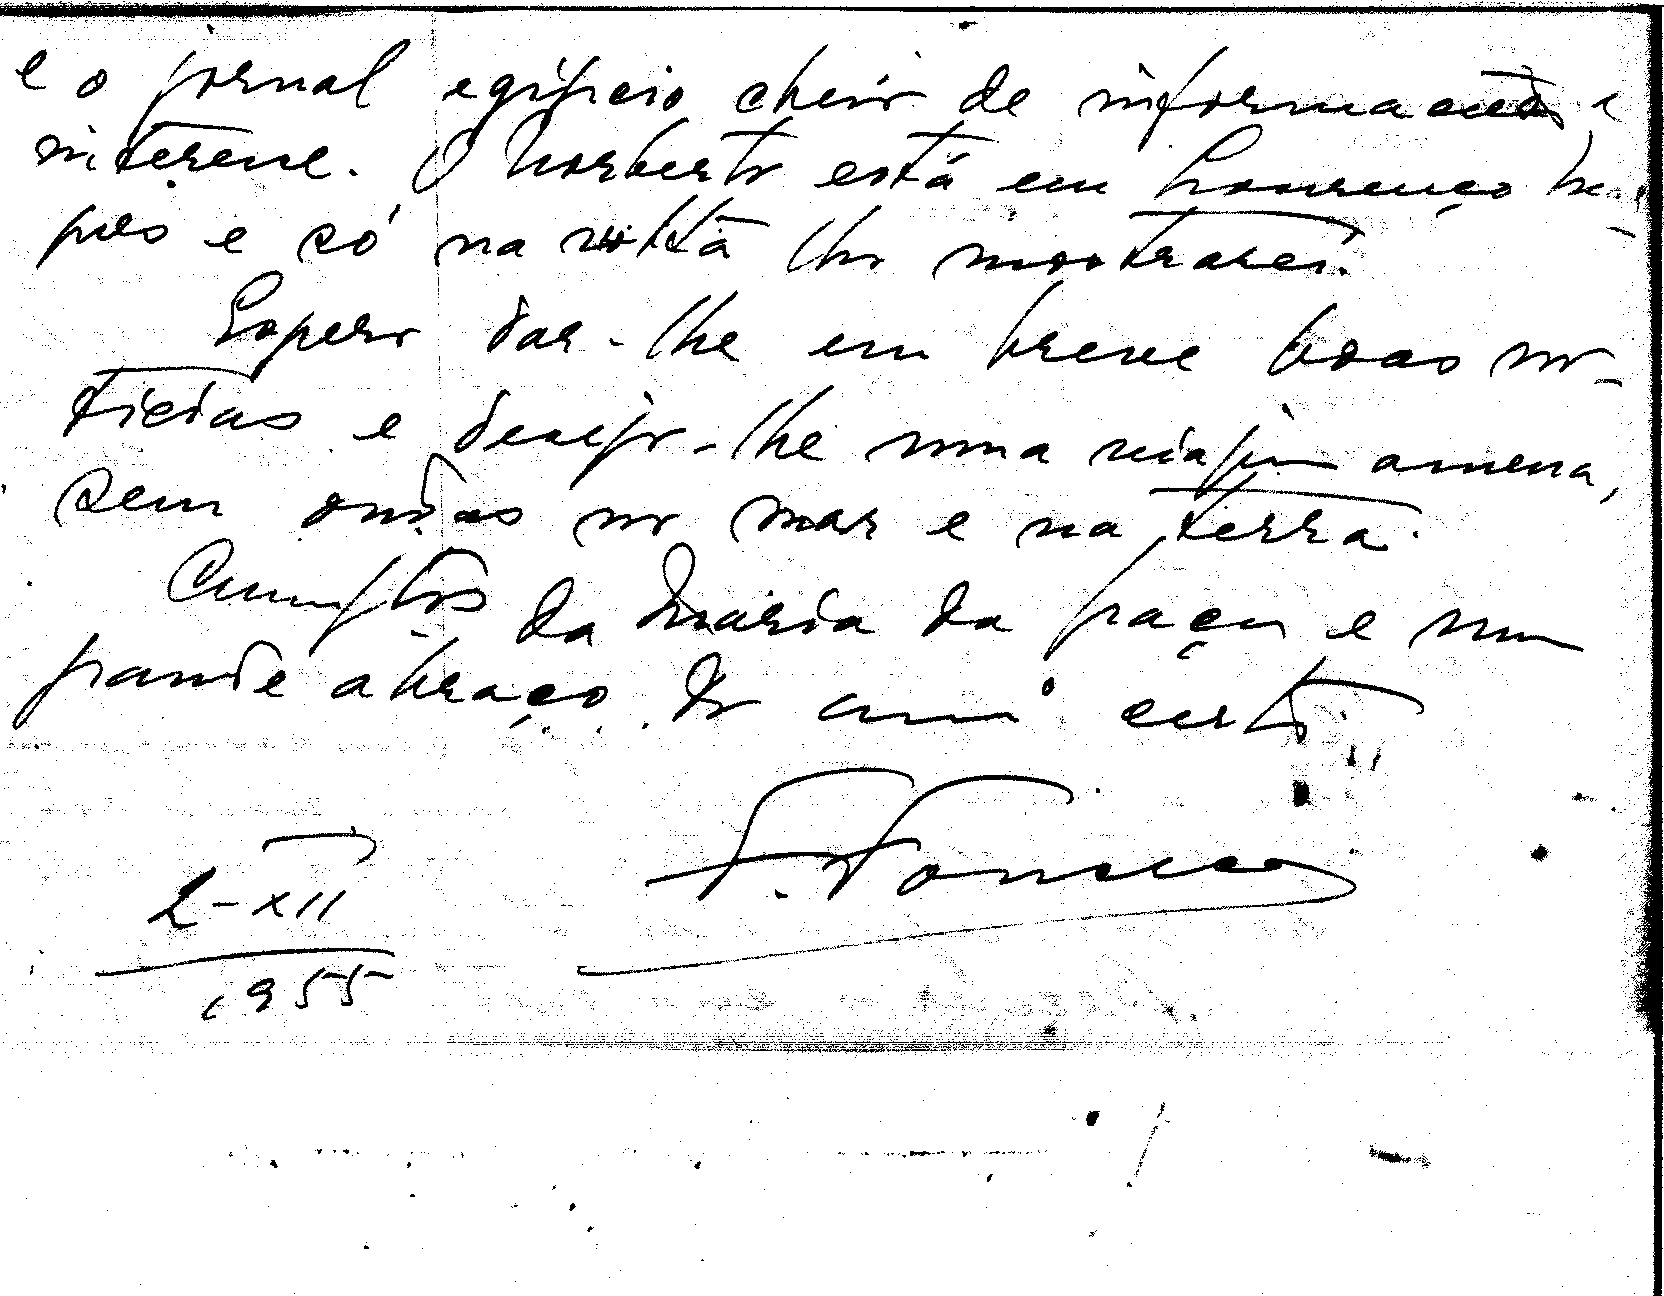 e o jornal egípcio cheio de informação e
interesse. O Norberto está em Lourenço Mar-
ques e só na volta lho mostrarei.
Espero dar-lhe em breve boas no-
tícias e desejo-lhe uma viagem amena,
sem ondas no mar e na terra.
Cumptos da Maria da Graça e um
grande abraço do amº certo
F. Fonseca
2-XII
1955